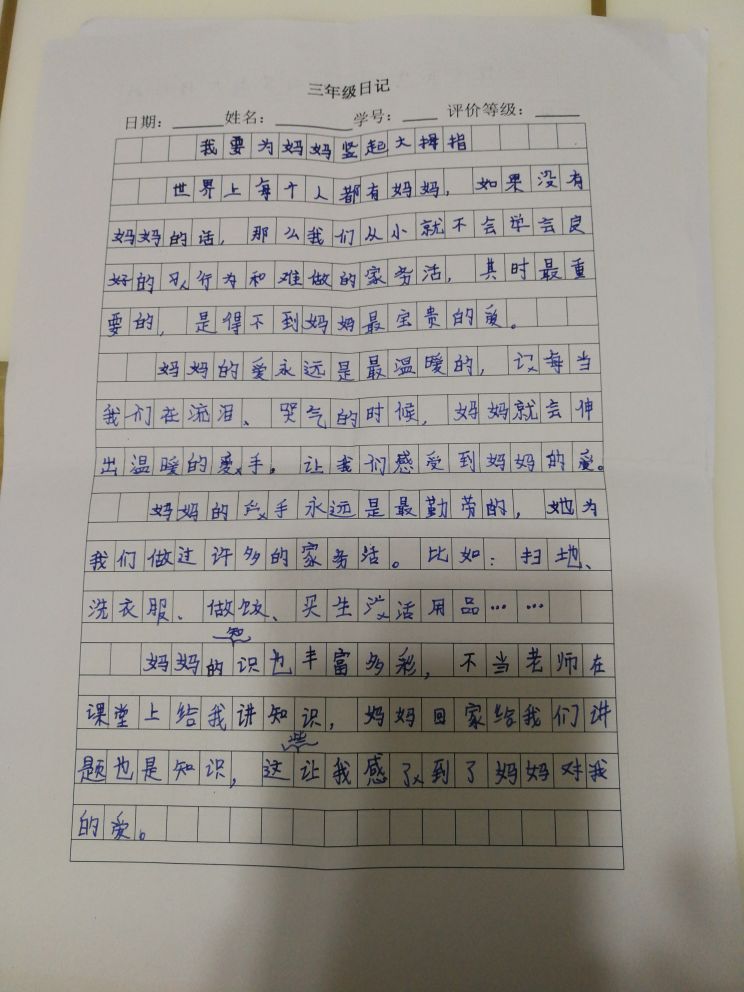 三年级日记
日期：______ 姓名：________ 学号：____ 评价等级：_____
我要为妈妈竖起大拇指
世界上每个人都有妈妈，如果没有
妈妈的话，那么我们从小就不会学会良
好的行为和难做的家务活，其时最重
要的，是得不到妈妈最宝贵的爱。
妈妈的爱永远是最温暖的，每当
我们在流泪、哭气的时候，妈妈就会伸
出温暖的手，让我们感受到妈妈的爱。
妈妈的手永远是最勤劳的，她为
我们做过许多的家务活。比如：扫地、
洗衣服、做饭、买生活用品……
妈妈的知识也丰富多彩，不当老师在
课堂上给我讲知识，妈妈回家给我们讲
题也是知识，这些让我感到了妈妈对我
的爱。